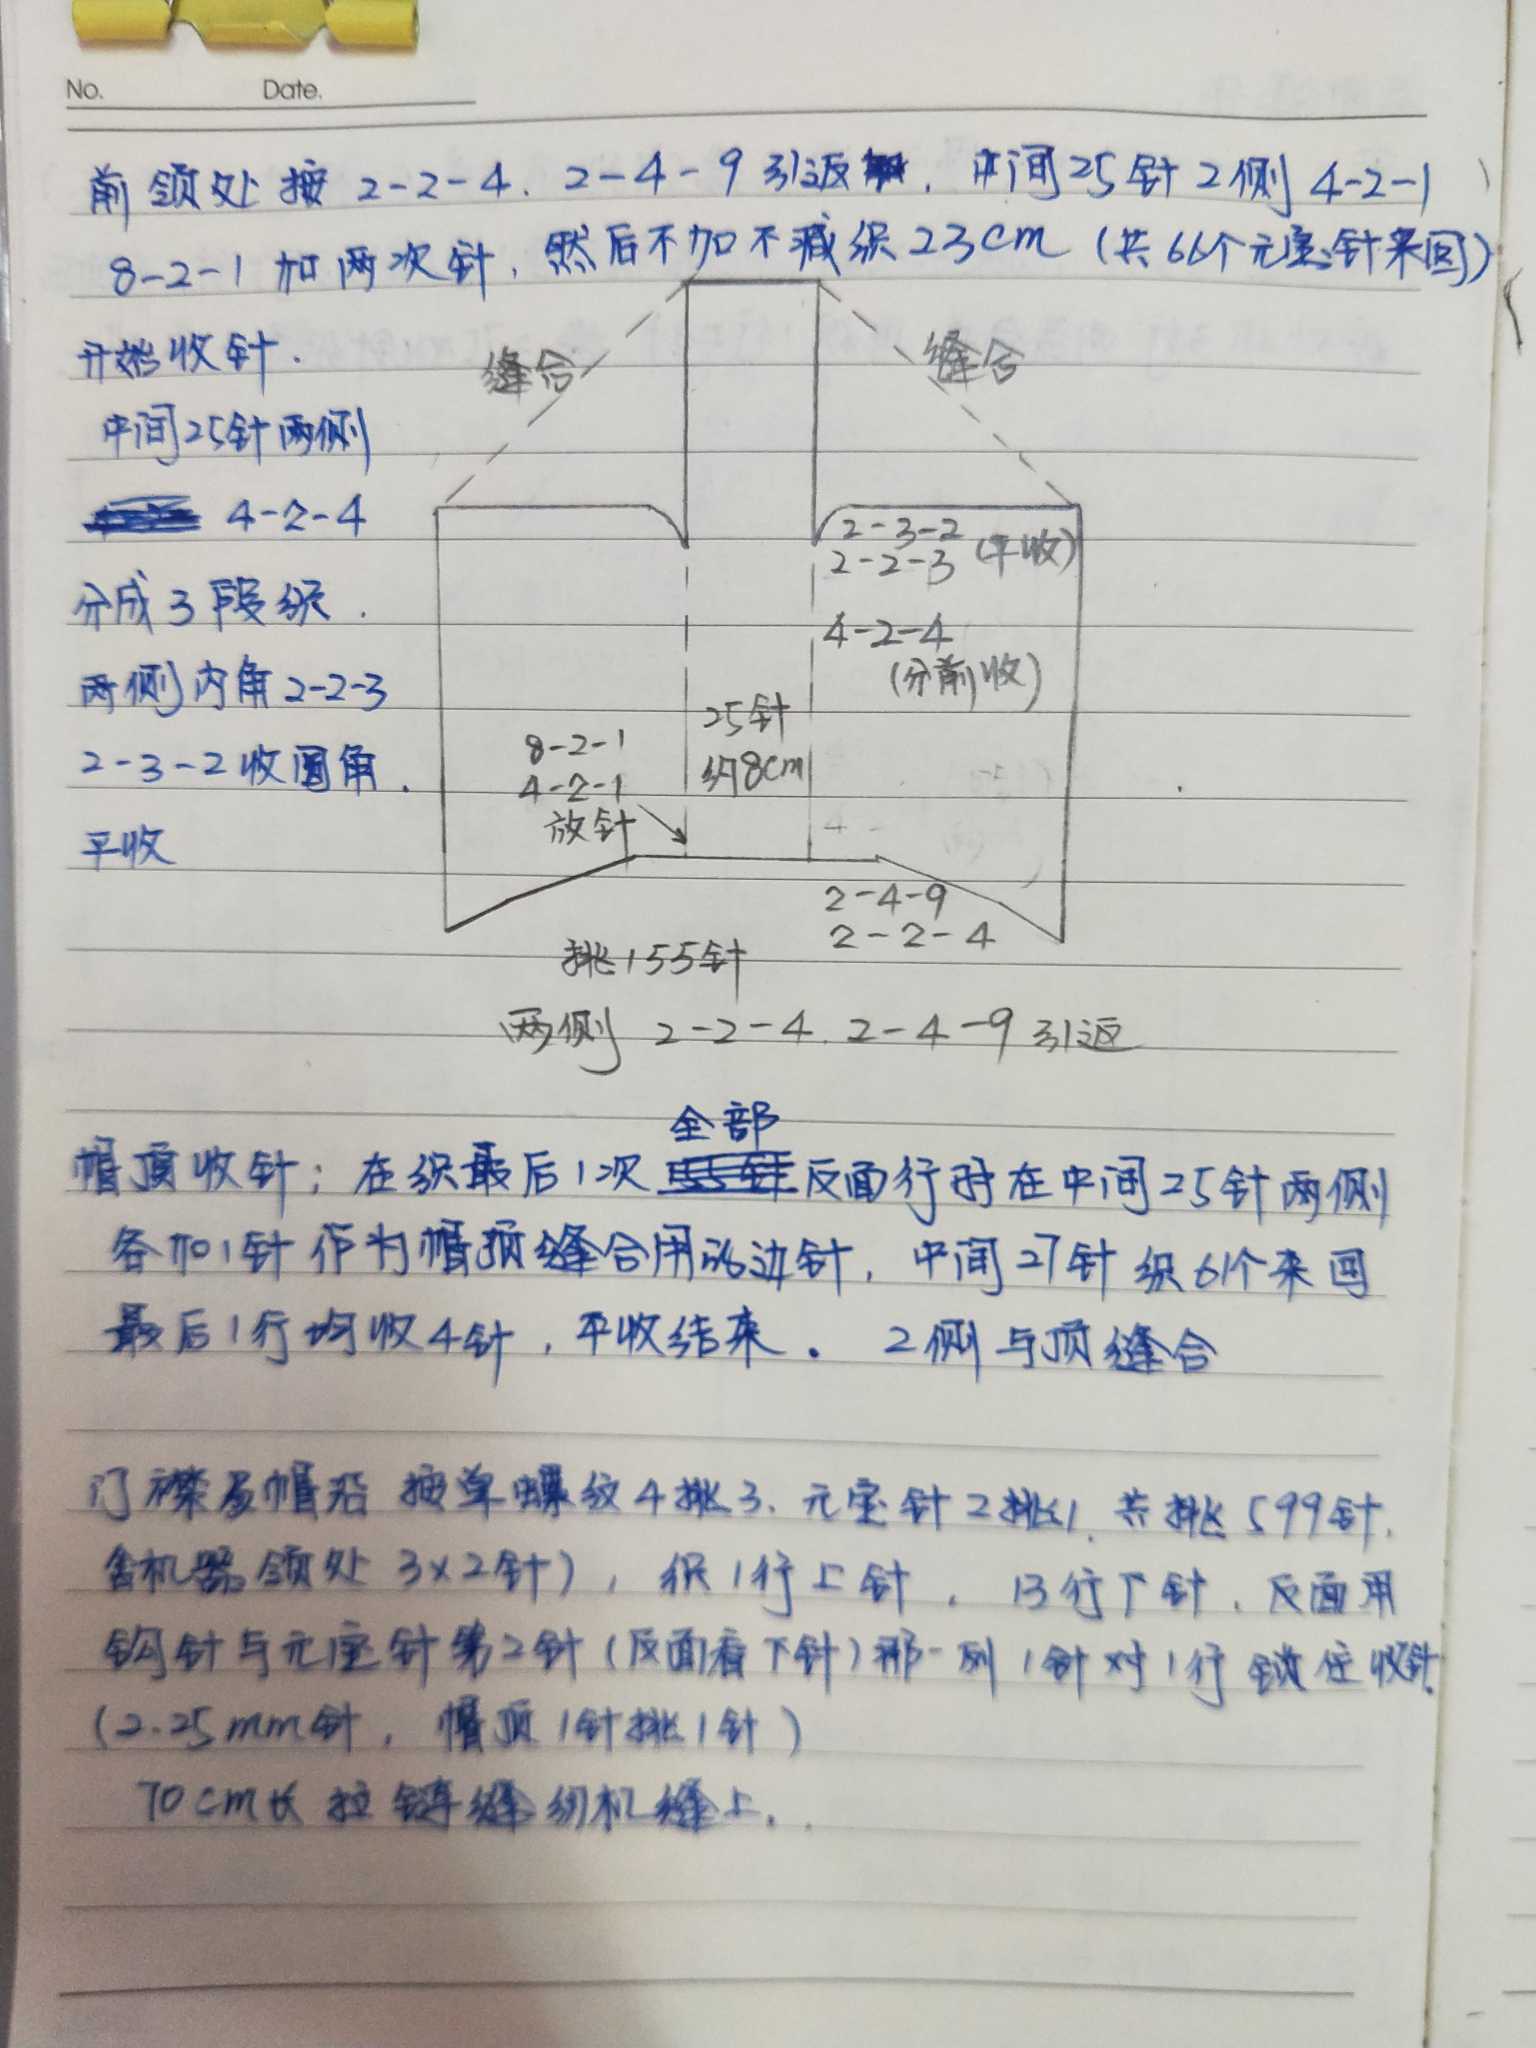 No. Date.
前领处按 2-2-4. 2-4-9 引返, 中间25针2侧 4-2-1
8-2-1 加两次针, 然后不加不减织23cm (共66个元宝针来回)
开始收针.
缝合 缝合
中间25针两侧
4-2-4
2-3-2
2-2-3 (平收)
分成3段织.
4-2-4
(分前收)
两侧内角2-2-3
25针
约8cm
8-2-1
4-2-1
放针
2-3-2收圆角.
平收
2-4-9
2-2-4
挑155针
两侧 2-2-4. 2-4-9 引返
全部
帽顶收针: 在织最后1次 反面行时在中间25针两侧
各加1针作为帽顶缝合用的边针, 中间27针织61个来回
最后1行均收4针, 平收结束. 2侧与顶缝合
门襟及帽沿 按单螺纹4挑3. 元宝针2挑1. 共挑599针.
含机器领处 3×2针), 织1行上针, 13行下针, 反面用
钩针与元宝针第2针(反面看下针)那一列1针对1行锁住收针.
(2.25mm针, 帽顶1针挑1针)
70cm长拉链缝纫机缝上.